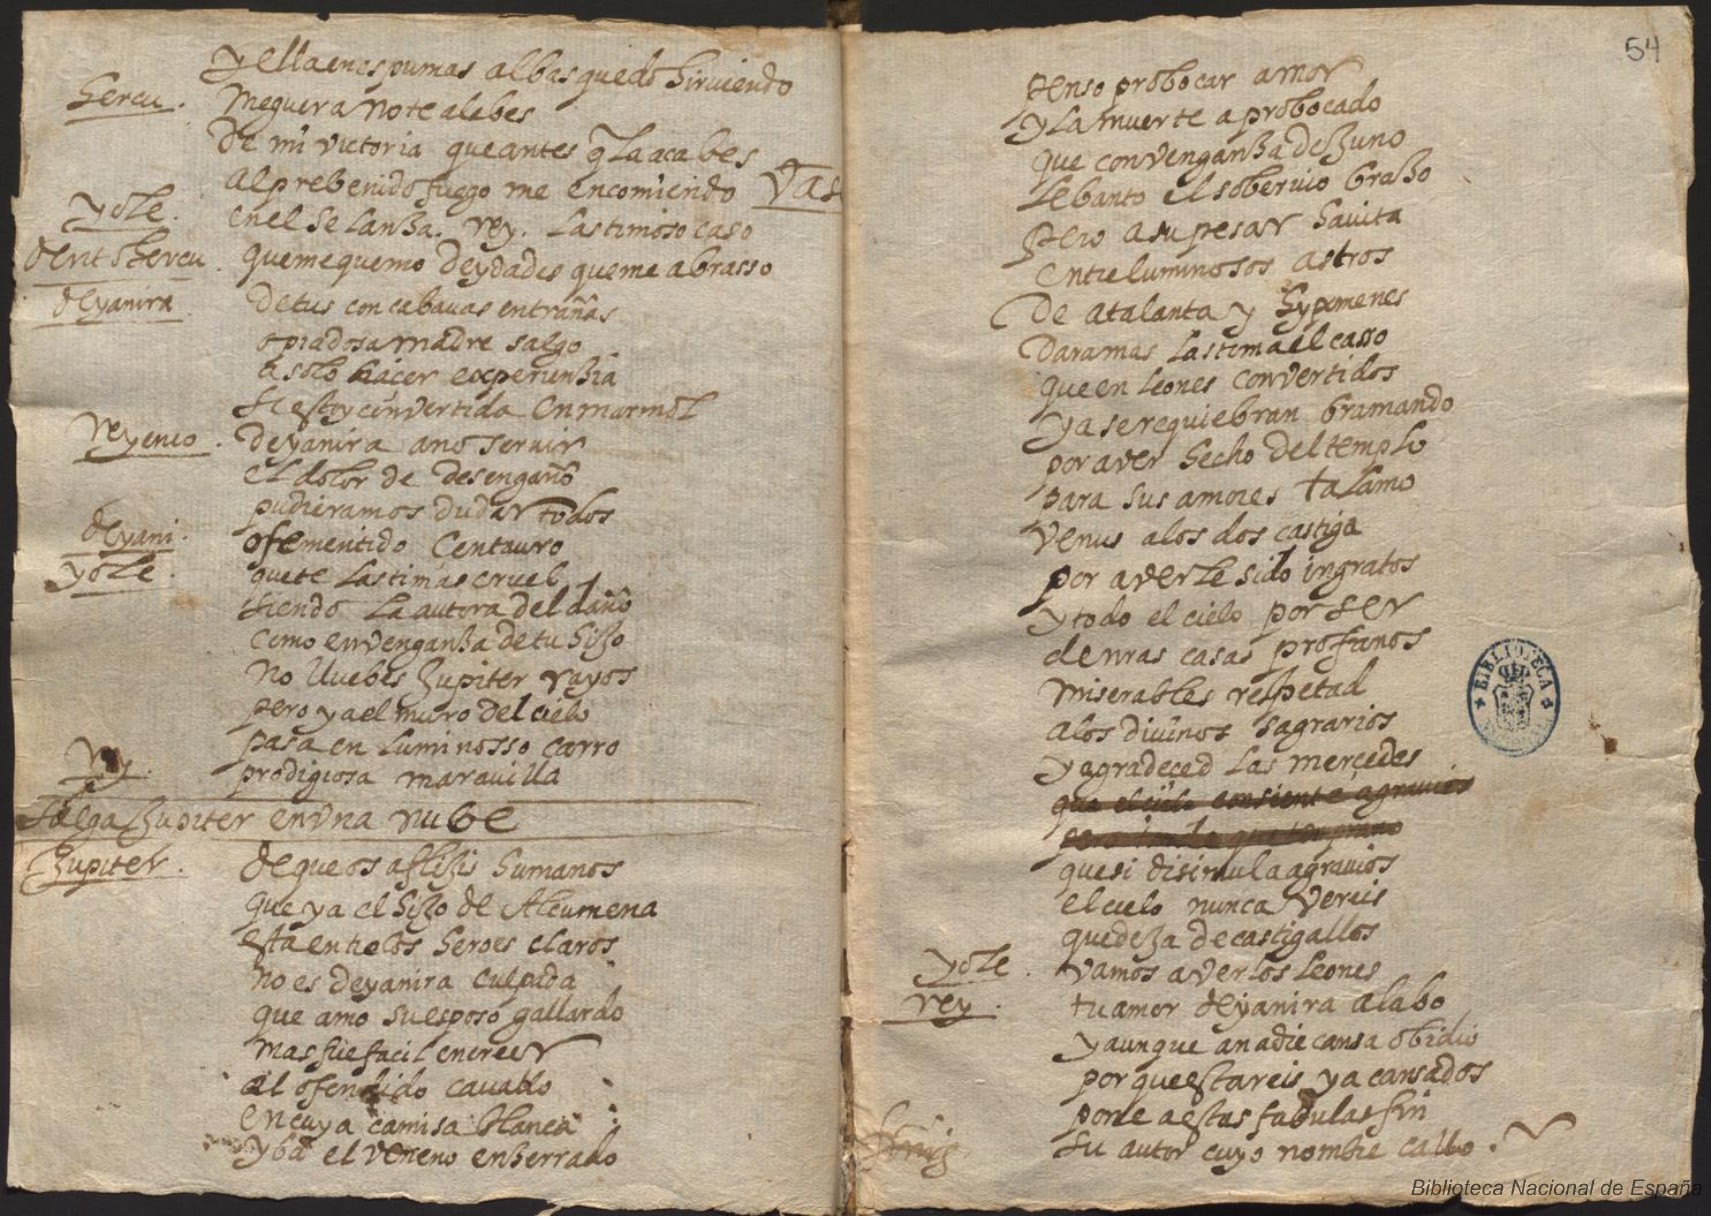 y ella en espumas albas quedó hirviendo
hercu. meguera no te alabes
de mi victoria que antes q la acabes
al prebenido fuego me encomiendo vas
yole. en el se lanza. rey. lastimoso caso
dent hercu. que me quemo deydades que me abrasso
deyanira de tus concabavas entrañas
o piadosa madre salgo
a solo hacer experienzia
si estoy convertida en marmol
rey eneo. deyanira a no servir
el dolor de desengaño
pudieramos dudar todos
deyani. o fementido Centauro
yole. que te lastimas cruel
siendo la autora del daño
como en venganza de tu hijo
no lluebes Jupiter rayos
pero ya el muro del cielo
pasa en luminosso carro
rey. prodigiosa maravilla
salga Jupiter en vna nube
Jupiter. de que os aflijis humanos
que ya el hijo de Alcumena
esta entre los heroes claros
no es deyanira culpada
que amo su esposo gallardo
mas fue facil en creer
al ofendido cavallo
en cuya camisa blanca
yba el veneno enherrado
54
penso probocar amor
y la muerte a probocado
que con venganza de Juno
lebanto el sobervio brazo
pero a su pesar havita
entre luminosos astros
de atalanta y hypomenes
dara mas lastima el casso
que en leones convertidos
ya se requiebran bramando
por aver hecho del templo
para sus amores talamo
venus a los dos castiga
por averle sido ingratos
y todo el cielo por ser
de nras casas profanos
miserables respetad
a los divinos sagrarios
y agradeced las mercedes
que el cielo consiente agravios
que si disimula agravios
el cielo nunca vereis
que deja de castigallos
yole. vamos a ver los leones
rey. tu amor deyanira alabo
y aunque a nadie cansa obidio
por que estareis ya cansados
pone a estas fabulas fin
su autor cuyo nombre callo.
finis
BIBLIOTECA
Biblioteca Nacional de España